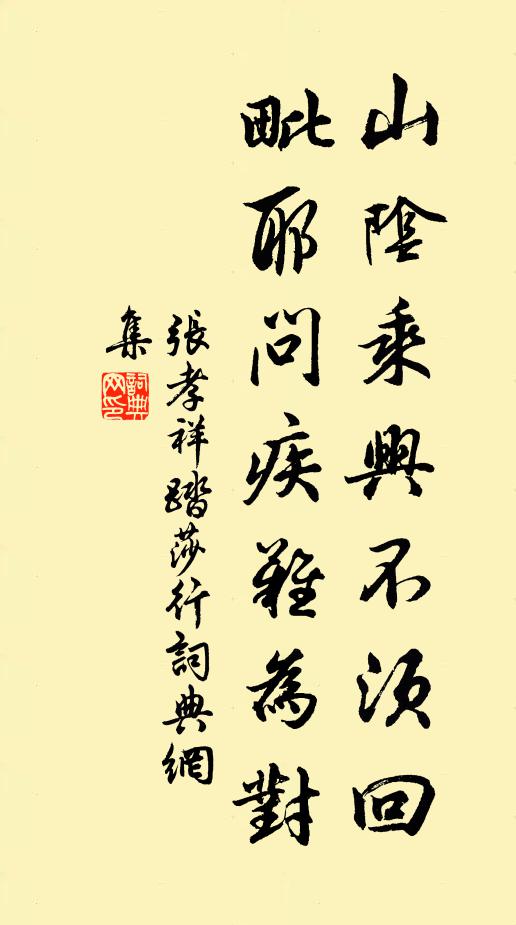 山陰乘興不須回
毗耶問疾難為對
張孝祥踏莎行詞典網
集
詞典
网印